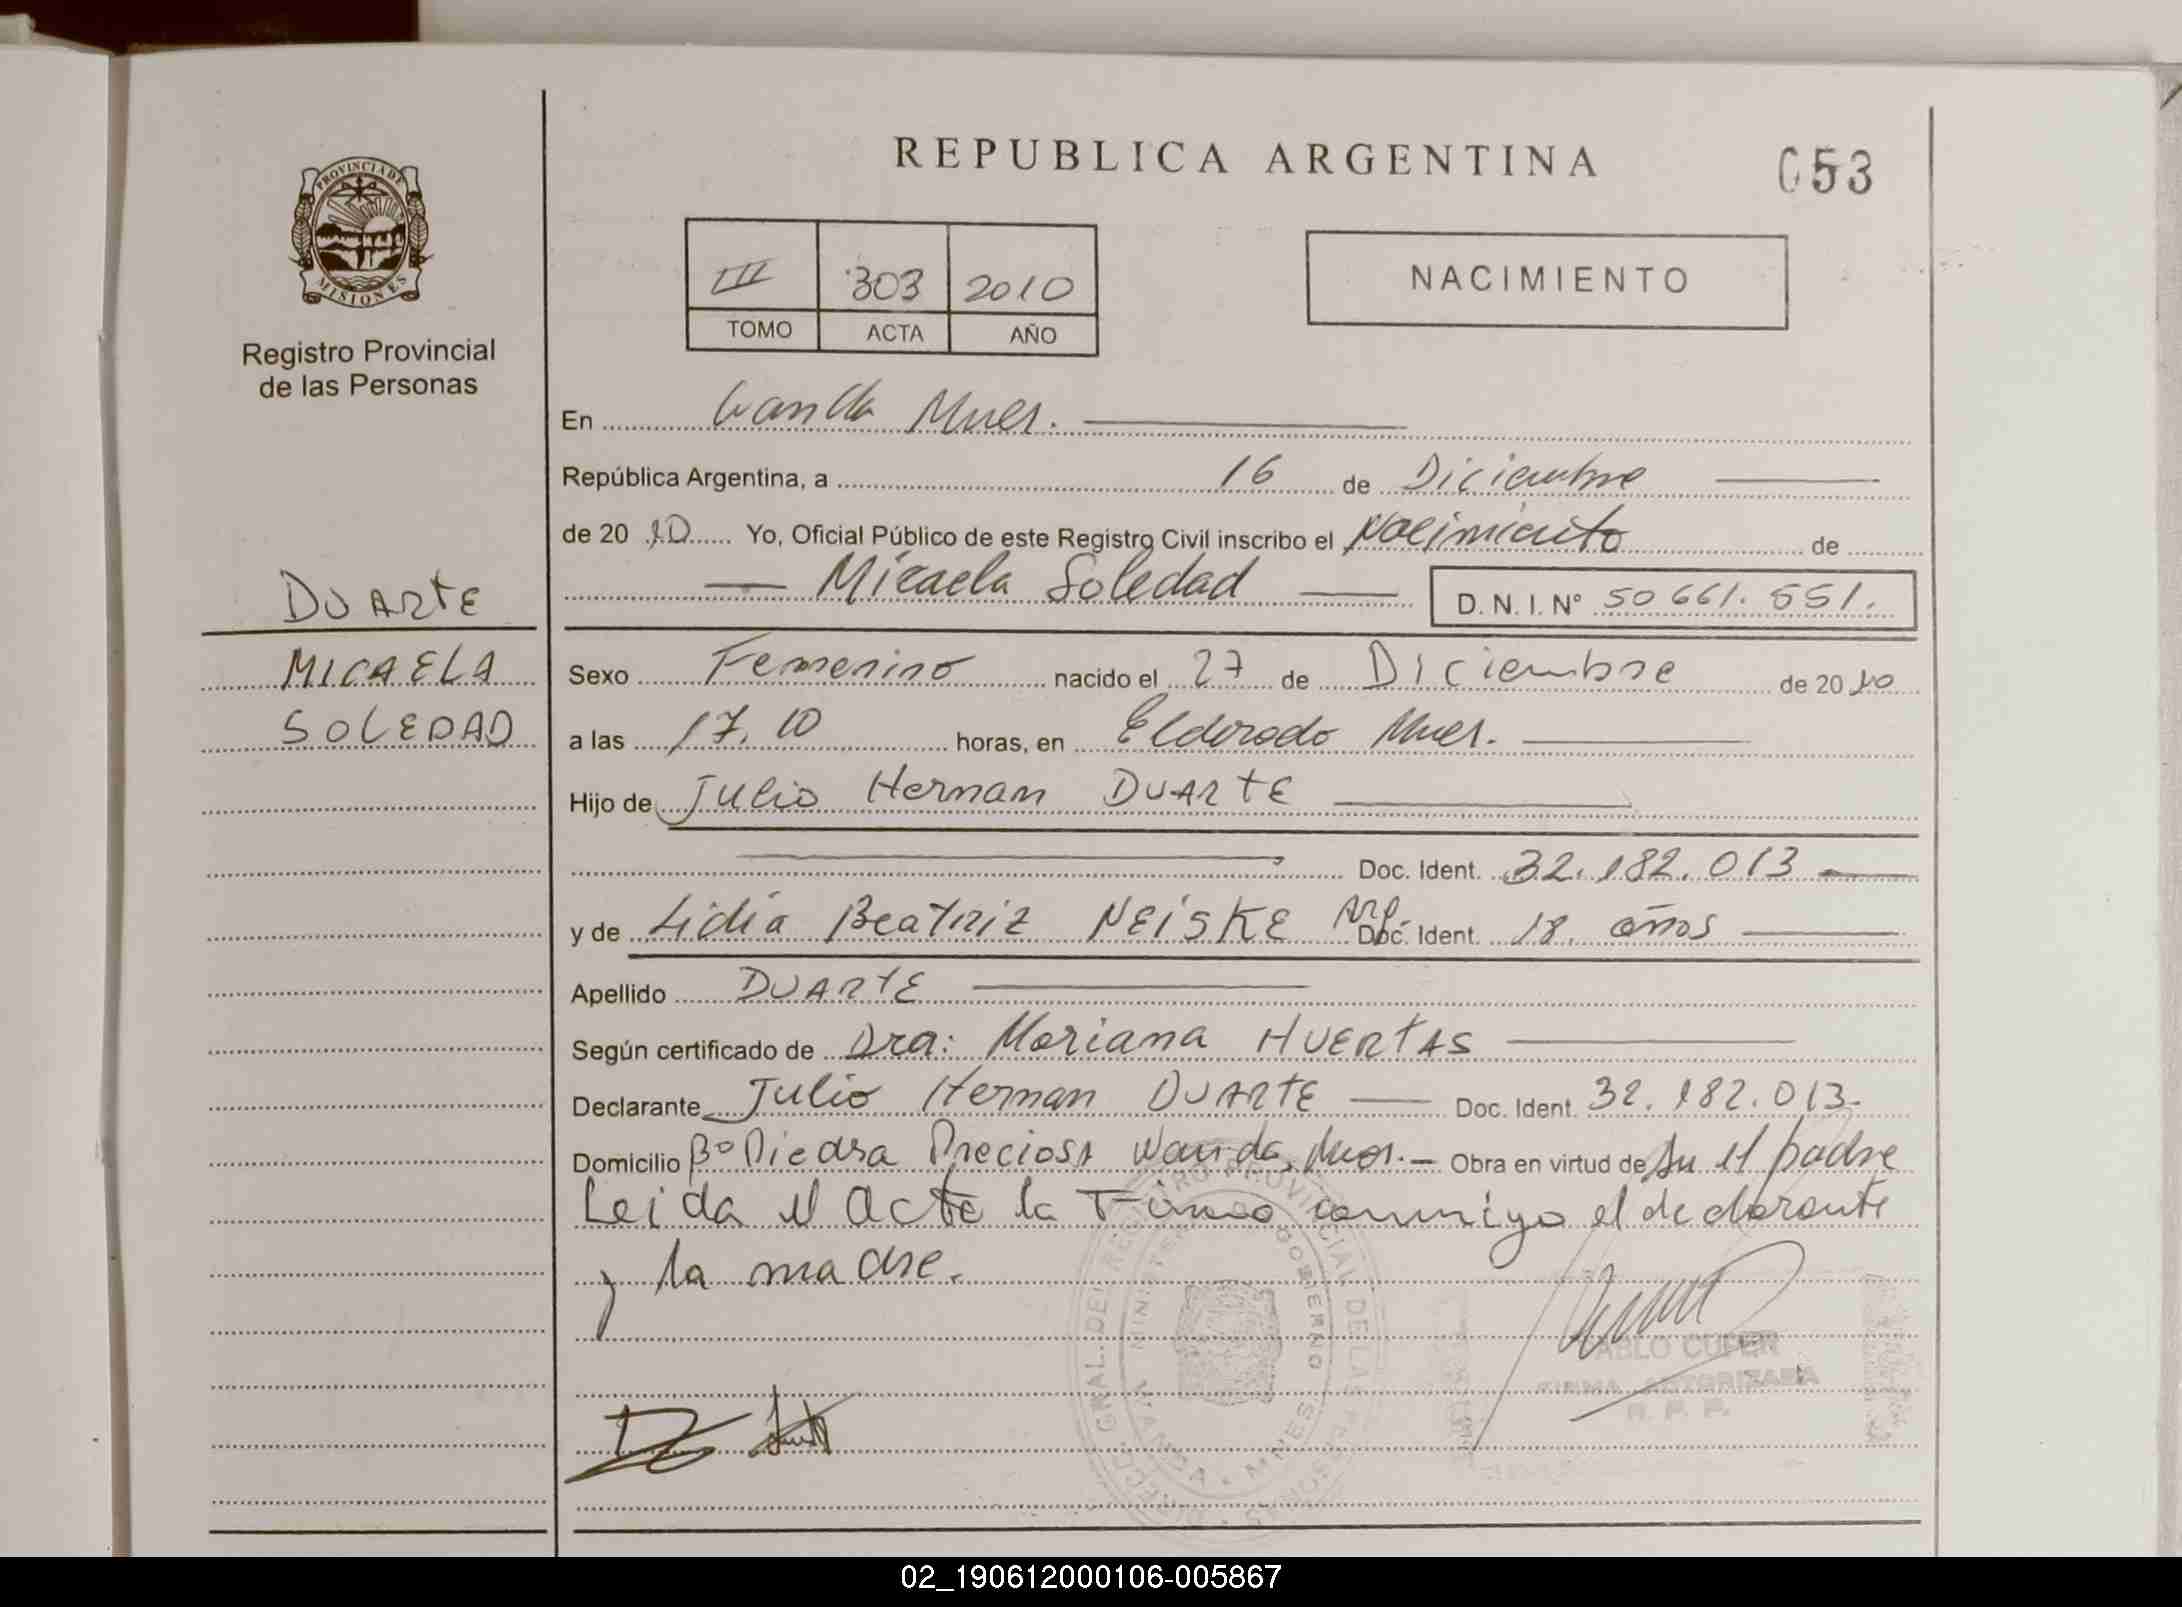 REPUBLICA ARGENTINA
053
PROVINCIA DE
MISIONES
Registro Provincial
de las Personas
III 303 2010
TOMO ACTA AÑO
NACIMIENTO
En Wanda Mnes.
República Argentina, a 16 de Diciembre
de 20 10 Yo, Oficial Público de este Registro Civil inscribo el Nacimiento de
Micaela Soledad D.N.I. Nº 50 661.551.
DUARTE
MICAELA
SOLEDAD
Sexo Femenino nacido el 27 de Diciembre de 20 10
a las 17.10 horas, en Eldorado Mnes.
Hijo de Julio Hernan DUARTE
Doc. Ident. 32.182.013
y de Lidia Beatriz NEISKE Arg. Doc. Ident. 18. años
Apellido DUARTE
Según certificado de Dra: Mariana HUERTAS
Declarante Julio Hernan DUARTE Doc. Ident. 32.182.013.
Domicilio Bº Piedra Preciosa Wanda, Mnes. Obra en virtud de Su el padre
Leida el Acta la Firma conmigo el declarante
y la madre.
DIRECC. GRAL. DEL REGISTRO PROVINCIAL DE LAS PERSONAS
GOBIERNO
WANDA MNES
PABLO CUPER
FIRMA AUTORIZADA
R. P. P.
02_190612000106-005867